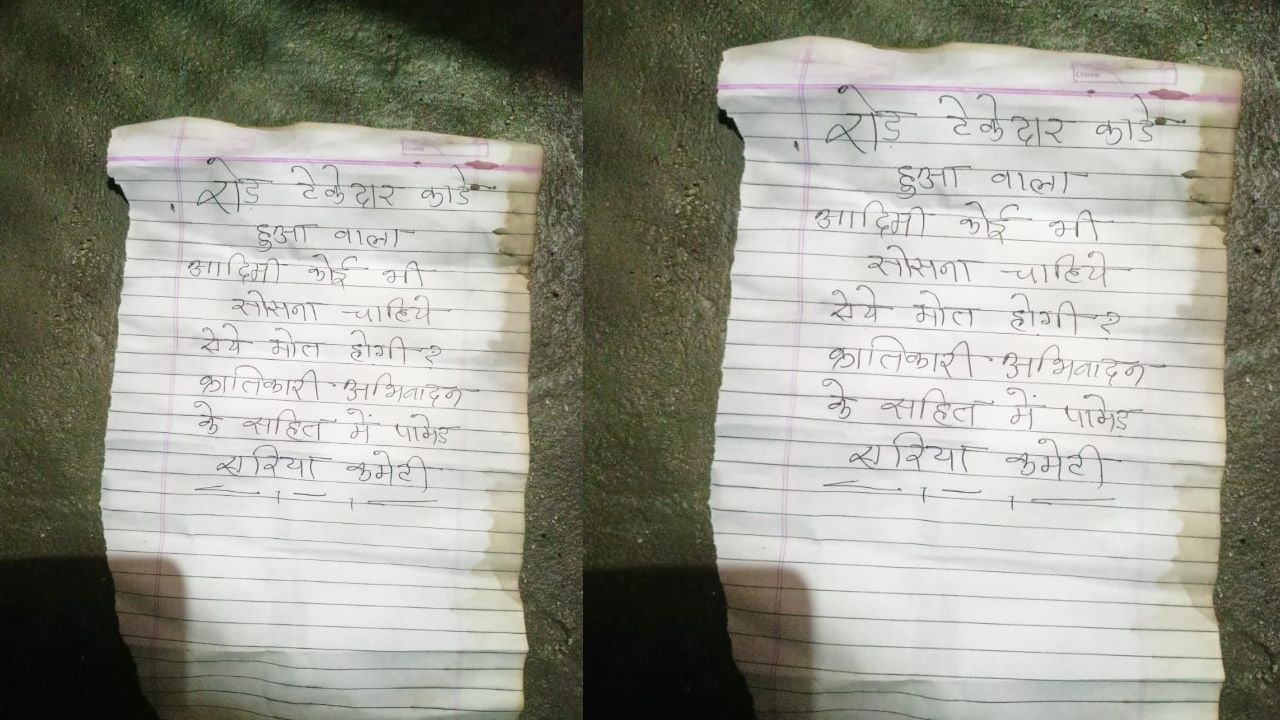 रोड़ टेकेदार काडे
हुआ वाला
आदिमी कोई भी
सोसना चाहिये
सेये मोत होगी?
क्रातिकारी अभिवादन
के सहित में पामेड़
एरिया कमेटी
रोड़ टेकेदार काडे
हुआ वाला
आदिमी कोई भी
सोसना चाहिये
सेये मोत होगी?
क्रातिकारी अभिवादन
के सहित में पामेड़
एरिया कमेटी